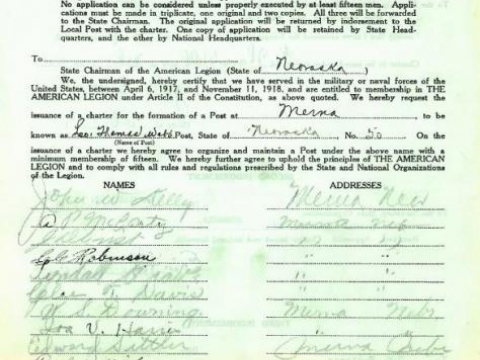 No application can be considered unless properly executed by at least fifteen men. Appli-
cations must be made in triplicate, one original and two copies. All three will be forwarded
to the State Chairman. The original application will be returned by indorsement to the
Local Post with the charter. One copy of application will be retained by State Head-
quarters, and the other by National Headquarters.
To
State Chairman of the American Legion (State of Nebraska)
We, the undersigned, hereby certify that we have served in the military or naval forces of the
United States, between April 6, 1917, and November 11, 1918, and are entitled to membership in THE
AMERICAN LEGION under Article II of the Constitution, as above quoted. We hereby request the
issuance of a charter for the formation of a Post at Merna, to be
known as Thomas Post, State of Nebraska No. 50 On the
(Name of Post)
issuance of a charter we hereby agree to organize and maintain a Post under the above name with a
minimum membership of fifteen. We hereby further agree to uphold the principles of THE AMERICAN
LEGION and to comply with all rules and regulations prescribed by the State and National Organizations
of the Legion.
NAMES ADDRESSES
John W Merna
Merna Neb
Robinson
Davis
Merna Nebr
V.
Edward Merna